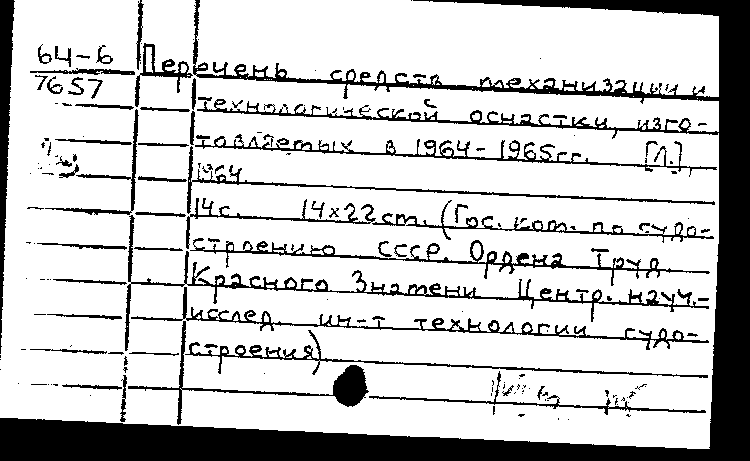 64-6
7657
Перечень средств механизации и
технологической оснастки, изго-
товляемых в 1964-1965гг. [Л.],
1964.
14с. 14х22см. (Гос. ком. по судо-
строению СССР. Ордена Труд.
Красного Знамени Центр. науч.-
исслед. ин-т технологии судо-
строения)